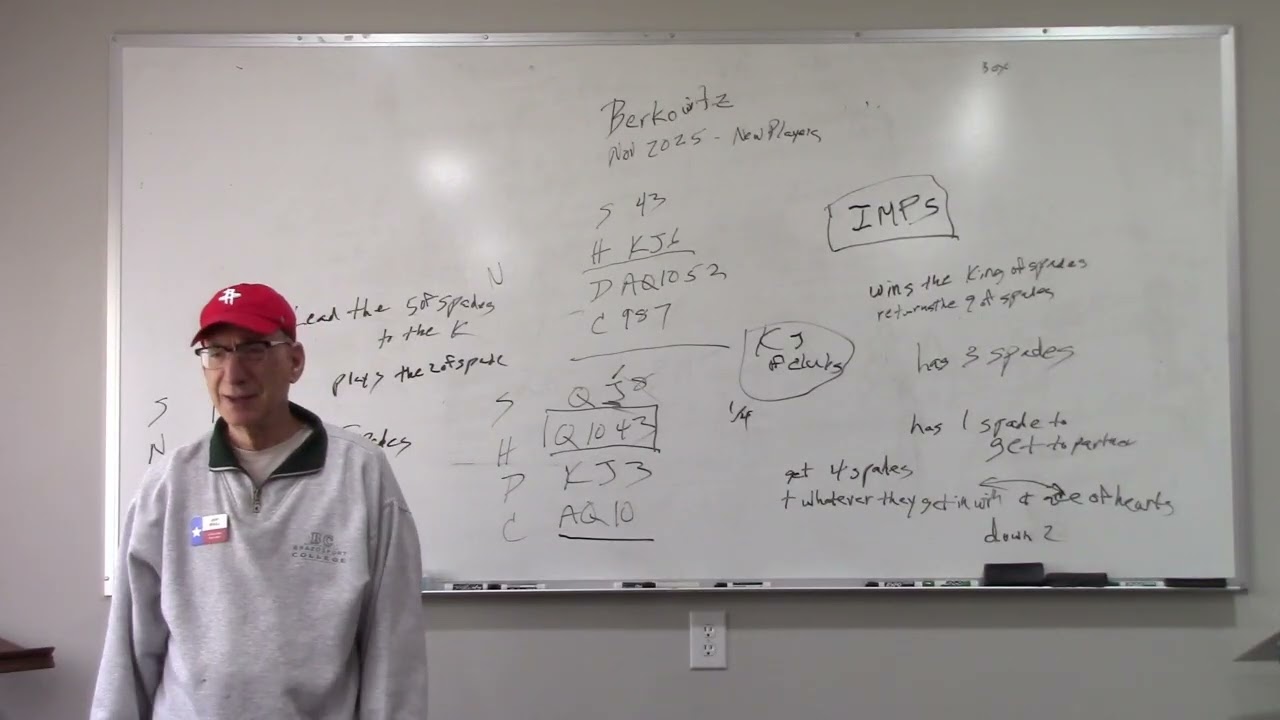 Box
Berkowitz
Nov 2025 - New Players
S 43
H KJ6
D AQ1052
C 987
N
Lead the 5 of spades
to the K
plays the 2 of spade
S
N
spades
S Q J8
H Q1043
D KJ3
C AQ10
IMPS
wins the King of spades
returns the 9 of spades
KJ
of clubs
1/4
has 3 spades
has 1 spade to
get to partner
get 4 spades
+ whatever they get in with & ace of hearts
down 2
BC
BRAZOSPORT
COLLEGE
R